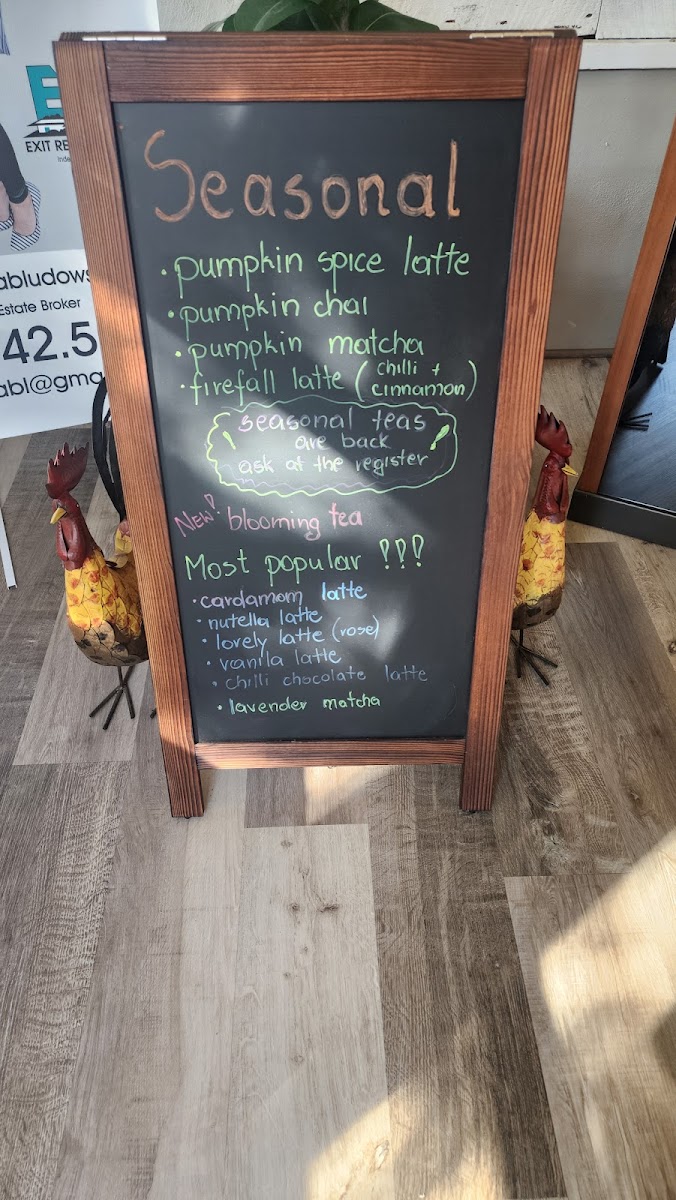 EXIT RE
abludows
Estate Broker
42.5
abl@gma
Seasonal
• pumpkin spice latte
• pumpkin chai
• pumpkin matcha
• firefall latte (chilli + cinnamon)
seasonal teas
are back
ask at the register !
New! blooming tea
Most popular !!!
• cardamom latte
• nutella latte
• lovely latte (rose)
• vanila latte
• chilli chocolate latte
• lavender matcha